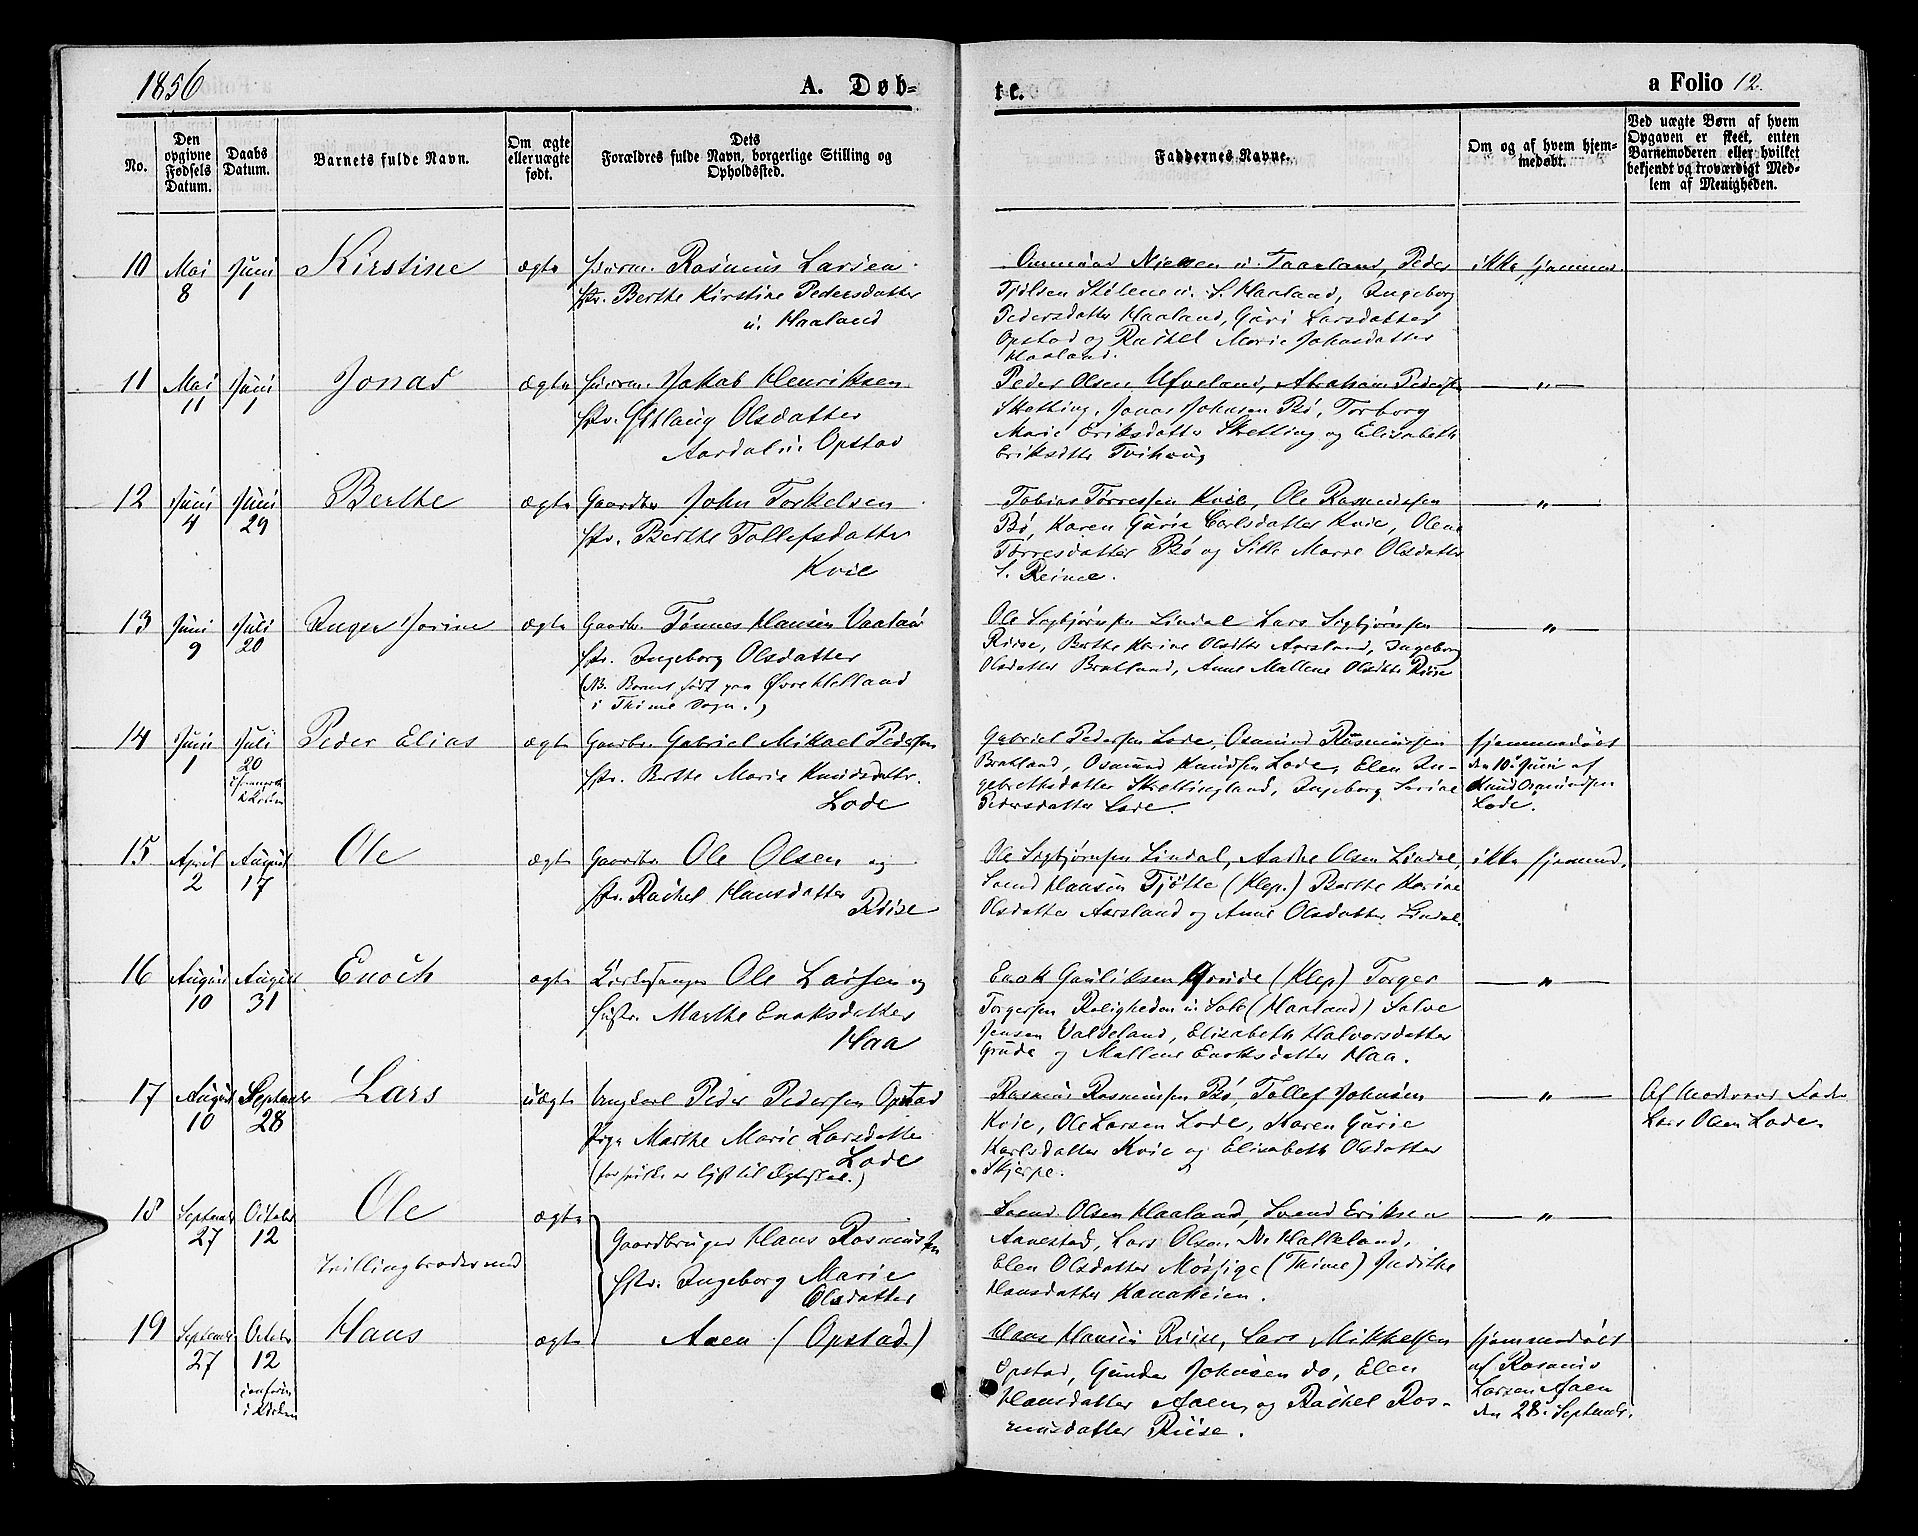 1856
A. Døb-
te.
a Folio 12.
No.
Den opgivne Fødsels Datum.
Daabs Datum.
Barnets fulde Navn.
Om ægte eller uægte født.
Dets Forældres fulde Navn, borgerlige Stilling og Opholdssted.
Faddernes Navne.
Om og af hvem hjemmedøbt.
Ved uægte Børn af hvem Opgaven er skeet, enten Barnemoderen eller hvilket bekjendt og troværdigt Medlem af Menigheden.
10 Mai 8 Juni 1 Kirstine ægte Huusm. Rasmus Larsen
Hstr. Berthe Kirstine Pedersdatter
u. Haaland
Nielsen u. Taarland, Peder
u. S. Haaland, Ingeborg
Pedersdatter Haaland, Guri Larsdatter
Opstad og Rachel Marie Johnsdatter
Haaland.
ikke hjemmed.
11 Mai 11 Juni 1 Jonas ægte Huusm. Jakob Henriksen
Hstr. Olsdatter
u. Opstad
Peder Olsen Ufveland, Abraham
Skretting, Jonas Johnsen Bø, Torborg
Marie Eriksdatter Skretting og Elisabeth
Eriksdtr
— " —
12 Juni 4 Juni 29 Berthe ægte Gaardbr John Torkelsen
Hstr. Berthe Tollefsdatter
Kvie
Tobias Tørressen Kvie, Ole Rasmussen
Bø, Karen Gurie Carlsdatter Kvie, Olene
Tørresdatter Bø og Sille Marie Olsdatter
S. Reime.
— " —
13 Juni 9 Juli 20 Inger Jorine ægte Gaardbr. Tønnes Hansen
Hstr. Ingeborg Olsdatter
(NB. Barnet født paa Øvre Helland
i Thime Sogn.)
Ole Sigbjørnsen Lindal Lars Sigbjørnsen
Riise, Berthe Karine Olsdtter Aarsland, Ingeborg
Olsdatter Bratland, Anne Mallene Olsdtr Riise
— " —
14 Juni 1 Juli 20 Peder Elias ægte Gaardbr. Gabriel Mikael Pedersen
Hstr. Berthe Marie Knudsdatter.
Lode
Gabriel Pedersen Lode, Osmund Rasmussen
Bratland, Osmund Knudsen Lode, Elen In-
gebrethsdatter Skrettingland, Ingeborg Serine
Pedersdatter Lode.
hjemmedøbt
den 10de Juni af
Knud Osmundsen
Lode.
15 April 2 August 17 Ole ægte Gaardbr Ole Olsen og
Hstr. Rachel Hansdatter
Riise
Ole Sigbjørnsen Lindal, Aadne Olsen Lindal,
Svend Hansen Tjøtte (Klep.) Berthe Karine
Olsdatter Aarsland og Anne Olsdatter Lindal.
ikke hjemmed.
16 August 10 August 31 Enoch ægte Kirkesanger Ole Larsen og
Hustr. Marthe Enoksdatter
Haa
Enok Gauliksen Grude (Klep) Torger
Torgersen Roligheden u. Sole (Haaland) Salve
Jensen Valdeland, Elisabeth Halvorsdatter
Grude og Mallene Enoksdatter Haa.
— " —
17 August 10 September 28 Lars uægte Ungkarl Peder Pedersen Opstad
Pige Marthe Marie Larsdatter
Lode
(for hvilke er lyst til Ægteskab.)
Rasmus Rasmussen Bø, Tollef Johnsen
Kvie, Ole Larsen Lode, Karen Gurie
Karlsdatter Kvie og Elisabeth Olsdatter
Skjerpe.
— " —
Af Moderens Fader
Lars Olsen Lode.
18 September 27 October 12 Ole ægte
Tvillingbroder med
Gaardbruger Hans Rasmussen
Hstr. Ingeborg Marie
Olsdatter
Svend Olsen Haaland, Svend Eriksen
Aanestad, Lars Olsen N. Halleland,
Elen Olsdatter Mossige (Thime) Judithe
Hansdatter Kanaheien.
— " —
19 September 27 October 12 Hans ægte
Aaen (Opstad.)
Hans Hansen Riise, Lars Mikkelsen
Opstad, Gunder Johnsen do, Elen
Hansdatter Aaen, og Rachel Ras-
musdatter Riise.
hjemmedøbt
af Rasmus
Larsen Aaen
den 28. Septembr.